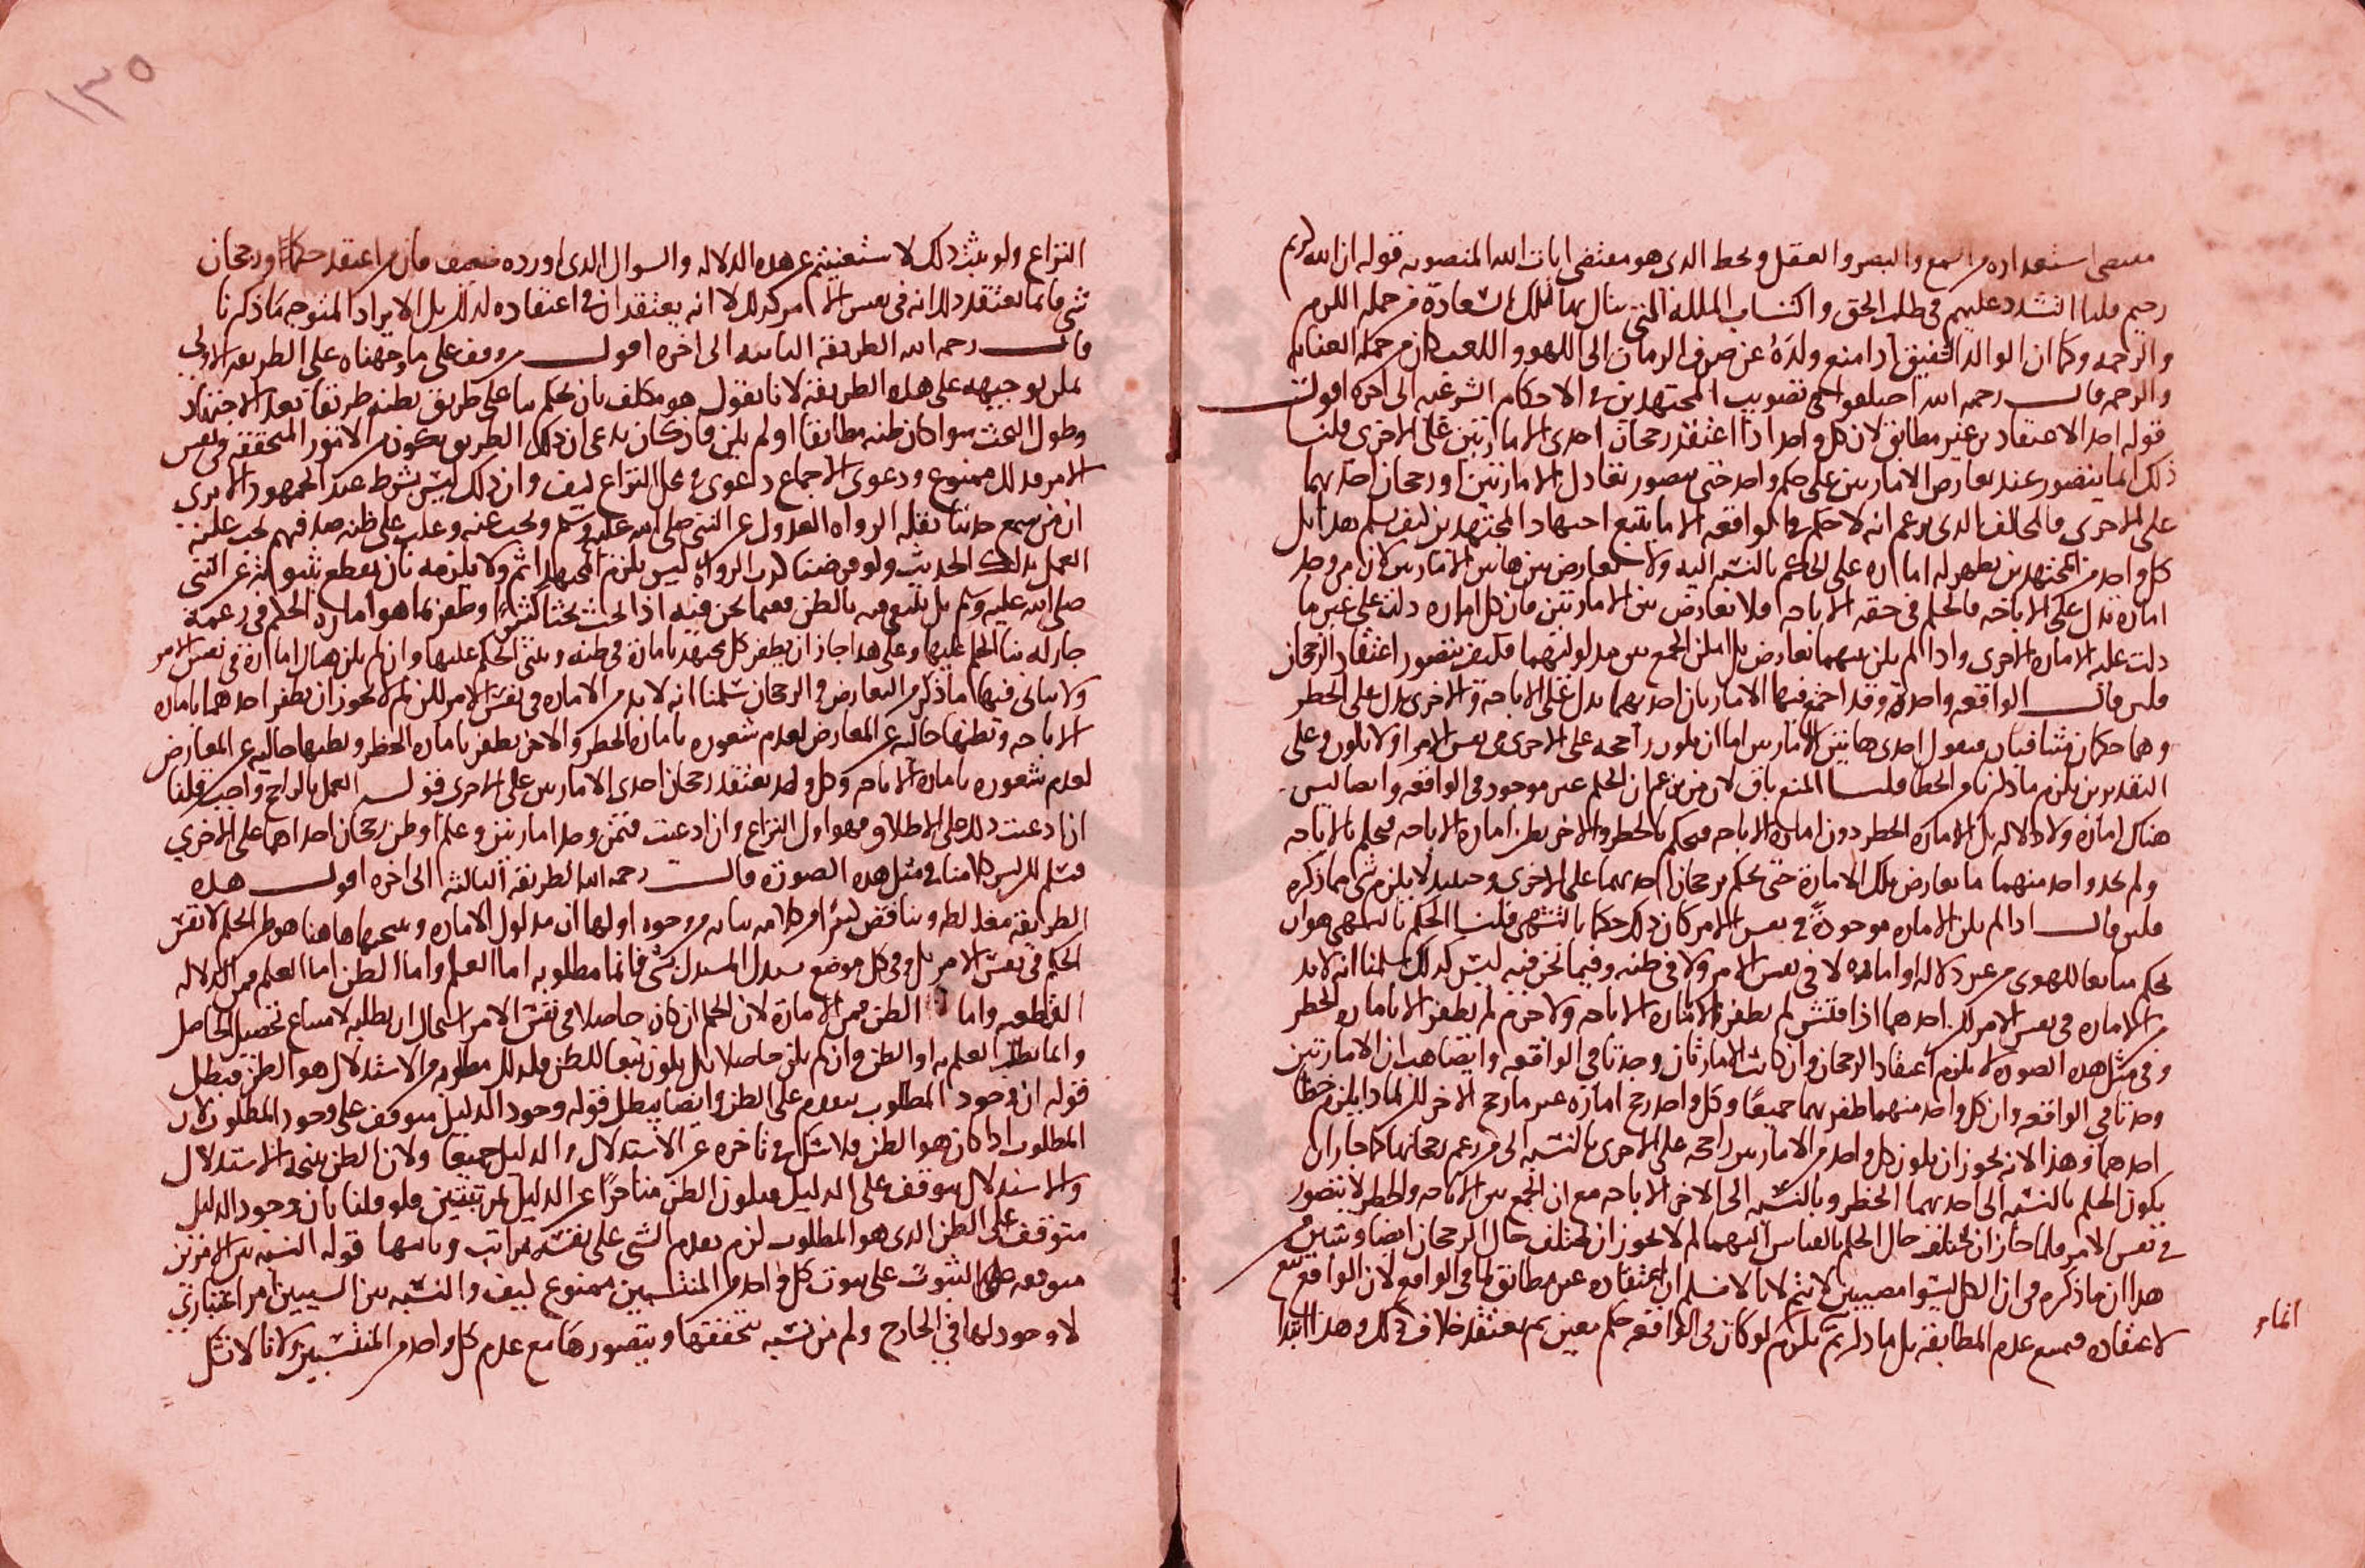 مقتضى استعداده من السمع والبصر والعقل ولحظ الذي هو مقتضى ايات الله المنصوبه قوله ان الله كريم
رحيم قلنا التشدد عليهم في طلب الحق واكتساب الملكه التي ينال بها تلك السعادة من جمله الكرم
والرحمه وكما ان الوالد الشفيق اذا منع ولده عن صرف الزمان الى اللهو واللعب كان من جمله العنايه
والرحمه قال رحمه الله اختلفوا في تصويب المجتهدين في الاحكام الشرعيه الى اخره اقول
قوله احد الاعتقادين غير مطابق لان كل واحد اذا اعتقد رجحان احدى الامارتين على الاخرى قلنا
ذلك انما يتصور عند تعارض الامارتين على حكم واحد حتى يتصور تعادل الامارتين او رجحان احديهما
على الاخرى فالمخالف الذي يزعم انه لا حكم في الواقعه الا ما يتبع اجتهاد المجتهدين كيف يسلم هذا بل
كل واحد من المجتهدين يظهر له اماره على الحكم بالنسبه اليه ولا تعارض بين هاتين الامارتين لان من وجد
امارة تدل على الاباحه فالحكم في حقه الاباحه فلا تعارض بين الامارتين فان كل اماره دلت على غير ما
دلت عليه الاماره الاخرى واذا لم يكن بينهما تعارض بل امكن الجمع بين مدلوليهما فكيف يتصور اعتقاد الرجحان
فلئن قال الواقعه واحدة وقد اجتمع فيها الامارتان احديهما يدل على الاباحة والاخرى يدل على الحظر
وهما حكمان متنافيان فنقول احدى هاتين الامارتين اما ان يكون راجحه على الاخرى في نفس الامر او لا يكون وعلى
التقديرين يلزم ما ذكرنا والخطا قلنا المنع باق لان من يزعم ان الحكم غير موجود في الواقعه وايضا ليس
هناك امارة ولا دلاله بل الامارة الحظر دون امارة الاباحه فيحكم بالحظر والاخر يظن امارة الاباحه فيحكم بالاباحه
ولم يجد واحد منهما ما يعارض تلك الامارة حتى يحكم برجحان احديهما على الاخرى وحينئذ لا يلزم شي مما ذكره
فلئن قال اذا لم يكن الاماره موجودة في نفس الامر كان ذلك حكما بالتشهي قلنا الحكم بالتشهي هو ان
يحكم متابعا للهوى من غير دلاله او اماره لا في نفس الامر ولا في ظنه وفيما نحن فيه ليس كذلك سلمنا انه لا بد
من الاماره في نفس الامر لكن احدهما اذا فتش لم يظفر الا بامارة الاباحه والاخر لم يظفر الا باماره الحظر
وفي مثل هذه الصوره لا يلزم اعتقاد الرجحان وان كانت الامارتان وجدتا في الواقعه وايضا هب ان الامارتين
وجدتا في الواقعه وان كل واحد منهما ظفر بهما جميعا وكل واحد رجح امارة غير ما رجح الاخر لكن لماذا يلزم خطا
احدهما وهذا لانه يجوز ان يكون كل واحد من الامارتين راجحه على الاخرى بالنسبه الى من زعم رجحانها كما جاز ان
يكون الحكم بالنسبه الى احديهما الحظر وبالنسبه الى الاخر الاباحه مع ان الجمع بين الاباحه والحظر لا يتصور
في نفس الامر فلما جاز ان يختلف حال الحكم بالقياس اليهما لم لا يجوز ان يختلف حال الرجحان ايضا وتبين من
هذا ان ما ذكره من ان الكل ليسوا مصيبين لا يتم لانا لا نسلم ان اعتقاده غير مطابق لما في الواقع لان الواقع تبع
لاعتقاده فنمنع عدم المطابقة بل ما ذكرتم يلزم لو كان في الواقعه حكم معين ثم يعتقد خلاف ذلك وهذا ابتدا
النزاع ولو ثبت ذلك لاستغنيتم عن هذه الدلاله والسوال الذي اورده ضعيف فان من اعتقد حكما او رجحان
شي فانما يعتقد ذلك انه في نفس الامر كذلك لا انه يعتقد ان في اعتقاده كذلك بل الايراد المتوجه ما ذكرنا
قال رحمه الله الطريقة الثانيه الى اخره اقول من وقف على ما وجهناه على الطريقه الاولى
يمكن توجيهه على هذه الطريقة لانا نقول هو مكلف بان يحكم بنا على طريق يظنه طريقا بعد الاجتهاد
وطول البحث سوا كان ظنه مطابقا او لم يكن فان كان يدعى ان ذلك الطريق يكون من الامور المتحققة في نفس
الامر فذلك ممنوع ودعوى الاجماع دعوى في محل النزاع كيف وان ذلك ليس بشرط عند الجمهور الا يرى
ان من سمع حديثا نقله الرواه العدول عن النبي صلى الله عليه وسلم وبحث عنه وغلب على ظنه صدقهم يجب عليه
العمل بذلك الحديث ولو فرضنا كذب الرواة ليس يلزم المجتهد اثم ولا يلزمه بان يقطع بثبوته عن النبي
صلى الله عليه وسلم بل يكتفى فيه بالظن ففيما نحن فيه اذا بحث بحثا كثيرا وظفر بما هو امارة الحكم في زعمه
جاز له بنا الحكم عليها وعلى هذا جاز ان يظفر كل مجتهد بامارة في ظنه ويبنى الحكم عليها وان لم يكن هناك امارة في نفس الامر
ولا يتاتى فيها ما ذكر من التعارض والرجحان سلمنا انه لا بد من الاماره في نفس الامر لكن لم لا يجوز ان يظفر احدهما باماره
الاباحه ويظنها خاليه عن المعارض لعدم شعوره بامارة الحظر والاخر يظفر باماره الحظر ويظنها خاليه عن المعارض
لعدم شعوره بامارة الاباحه وكل واحد يعتقد رجحان احدى الامارتين على الاخرى قوله العمل بالراجح واجب قلنا
ان ادعيت ذلك على الاطلاق فهو اول النزاع وان ادعيت فيمن وجد امارتين وعلم او ظن رجحان احداهما على الاخرى
فمسلم لكن ليس كلامنا في مثل هذه الصورة قال رحمه الله الطريقة الثالثه الى اخره اقول هذه
الطريقه مغلطه ويناقض كثيرا من كلامه بيانه من وجوه اولها ان مدلول الاماره ونتيجتها هاهنا هو ظن الحكم لا نفس
الحكم في نفس الامر بل وفي كل موضع يستدل المستدل بشي فانما مطلوبه اما العلم واما الظن اما العلم فمن الدلاله
القطعيه واما الظن فمن الامارة لان الحكم ان كان حاصلا في نفس الامر استحال ان يطلبه لامتناع تحصيل الحاصل
وانما يطلب العلم به او الظن وان لم يكن حاصلا بل يكون تبعا للظن فكذلك مطلوبه من الاستدلال هو الظن فبطل
قوله ان وجود المطلوب يتقدم على الظن وايضا يبطل قوله وجود الدليل يتوقف على وجود المطلوب لان
المطلوب اذا كان هو الظن فلا شك في تاخره عن الاستدلال والدليل جميعا ولان الظن نتيجة الاستدلال
والاستدلال يتوقف على الدليل فيكون الظن متاخرا عن الدليل بمرتبتين فلو قلنا بان وجود الدليل
متوقف على الظن الذي هو المطلوب لزم تقدم الشي على نفسه بمراتب وثانيها قوله النسبه بين الامرين
متوقفه في الثبوت على ثبوت كل واحد من المنتسبين ممنوع كيف والنسبه بين الشيئين امر اعتباري
لا وجود لها في الخارج ولم من نسبه تحققتها ويتصورها مع عدم كل واحد من المنتسبين ولانا لا نشك
١٣٥